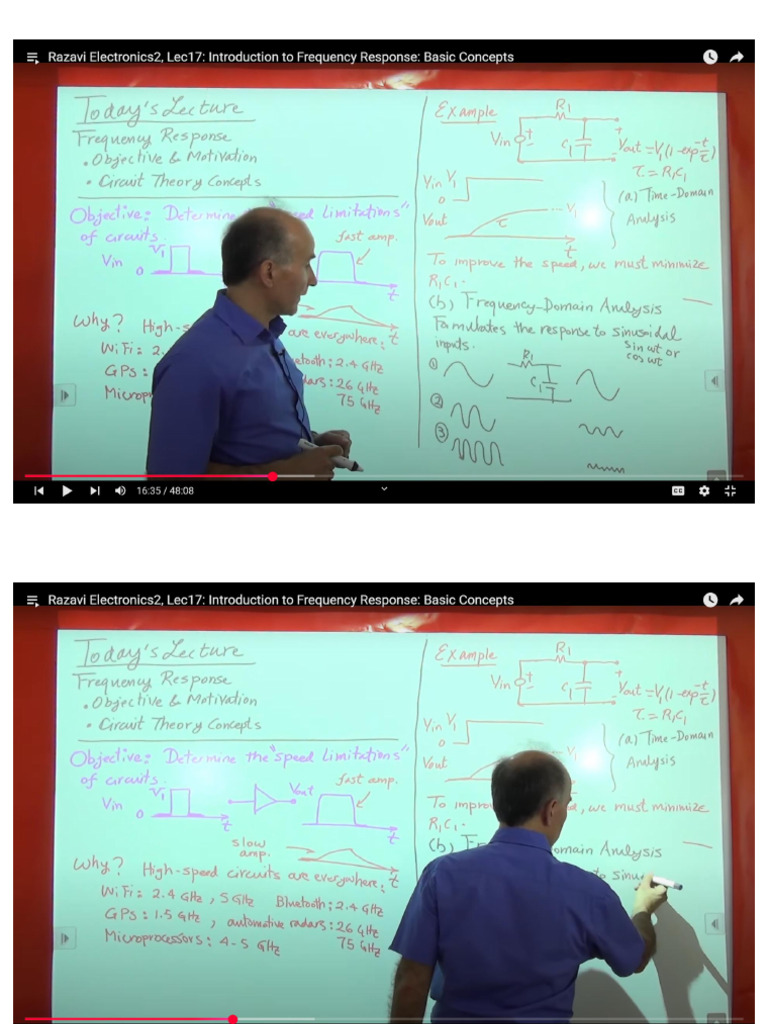 Razavi Electronics2, Lec17: Introduction to Frequency Response: Basic Concepts
Today's Lecture
Frequency Response
• Objective & Motivation
• Circuit Theory Concepts
Objective: Determine speed Limitations"
of circuits.
Vin
V1
0
fast amp.
t
Why? High-s are everywhere:
t
WiFi: 2. etooth: 2.4 GHz
GPS: dars: 26 GHz
Microp 75 GHz
Example
R1
Vin + -
C1
+
Vout = V1(1-exp -t/τ)
τ = R1C1
Vin V1
0
Vout τ ... V1
t
(a) Time-Domain
Analysis
To improve the speed, we must minimize
R1C1.
(b) Frequency-Domain Analysis
Fomulates the response to sinusoidal
inputs. sin wt or
cos wt
①
R1
C1
②
③
16:35 / 48:08
CC
Razavi Electronics2, Lec17: Introduction to Frequency Response: Basic Concepts
Today's Lecture
Frequency Response
• Objective & Motivation
• Circuit Theory Concepts
Objective: Determine the "speed Limitations"
of circuits.
Vin
V1
0
t
Vout
fast amp.
t
slow
amp.
t
Why? High-speed circuits are everywhere:
WiFi: 2.4 GHz, 5 GHz Bluetooth: 2.4 GHz
GPS: 1.5 GHz, automotive radars: 26 GHz
Microprocessors: 4-5 GHz 75 GHz
Example
R1
Vin + -
C1
+
Vout = V1(1-exp -t/τ)
τ = R1C1
Vin V1
0
Vout V1
(a) Time-Domain
Analysis
To impro d, we must minimize
R1C1.
(b) F omain Analysis
to sinu